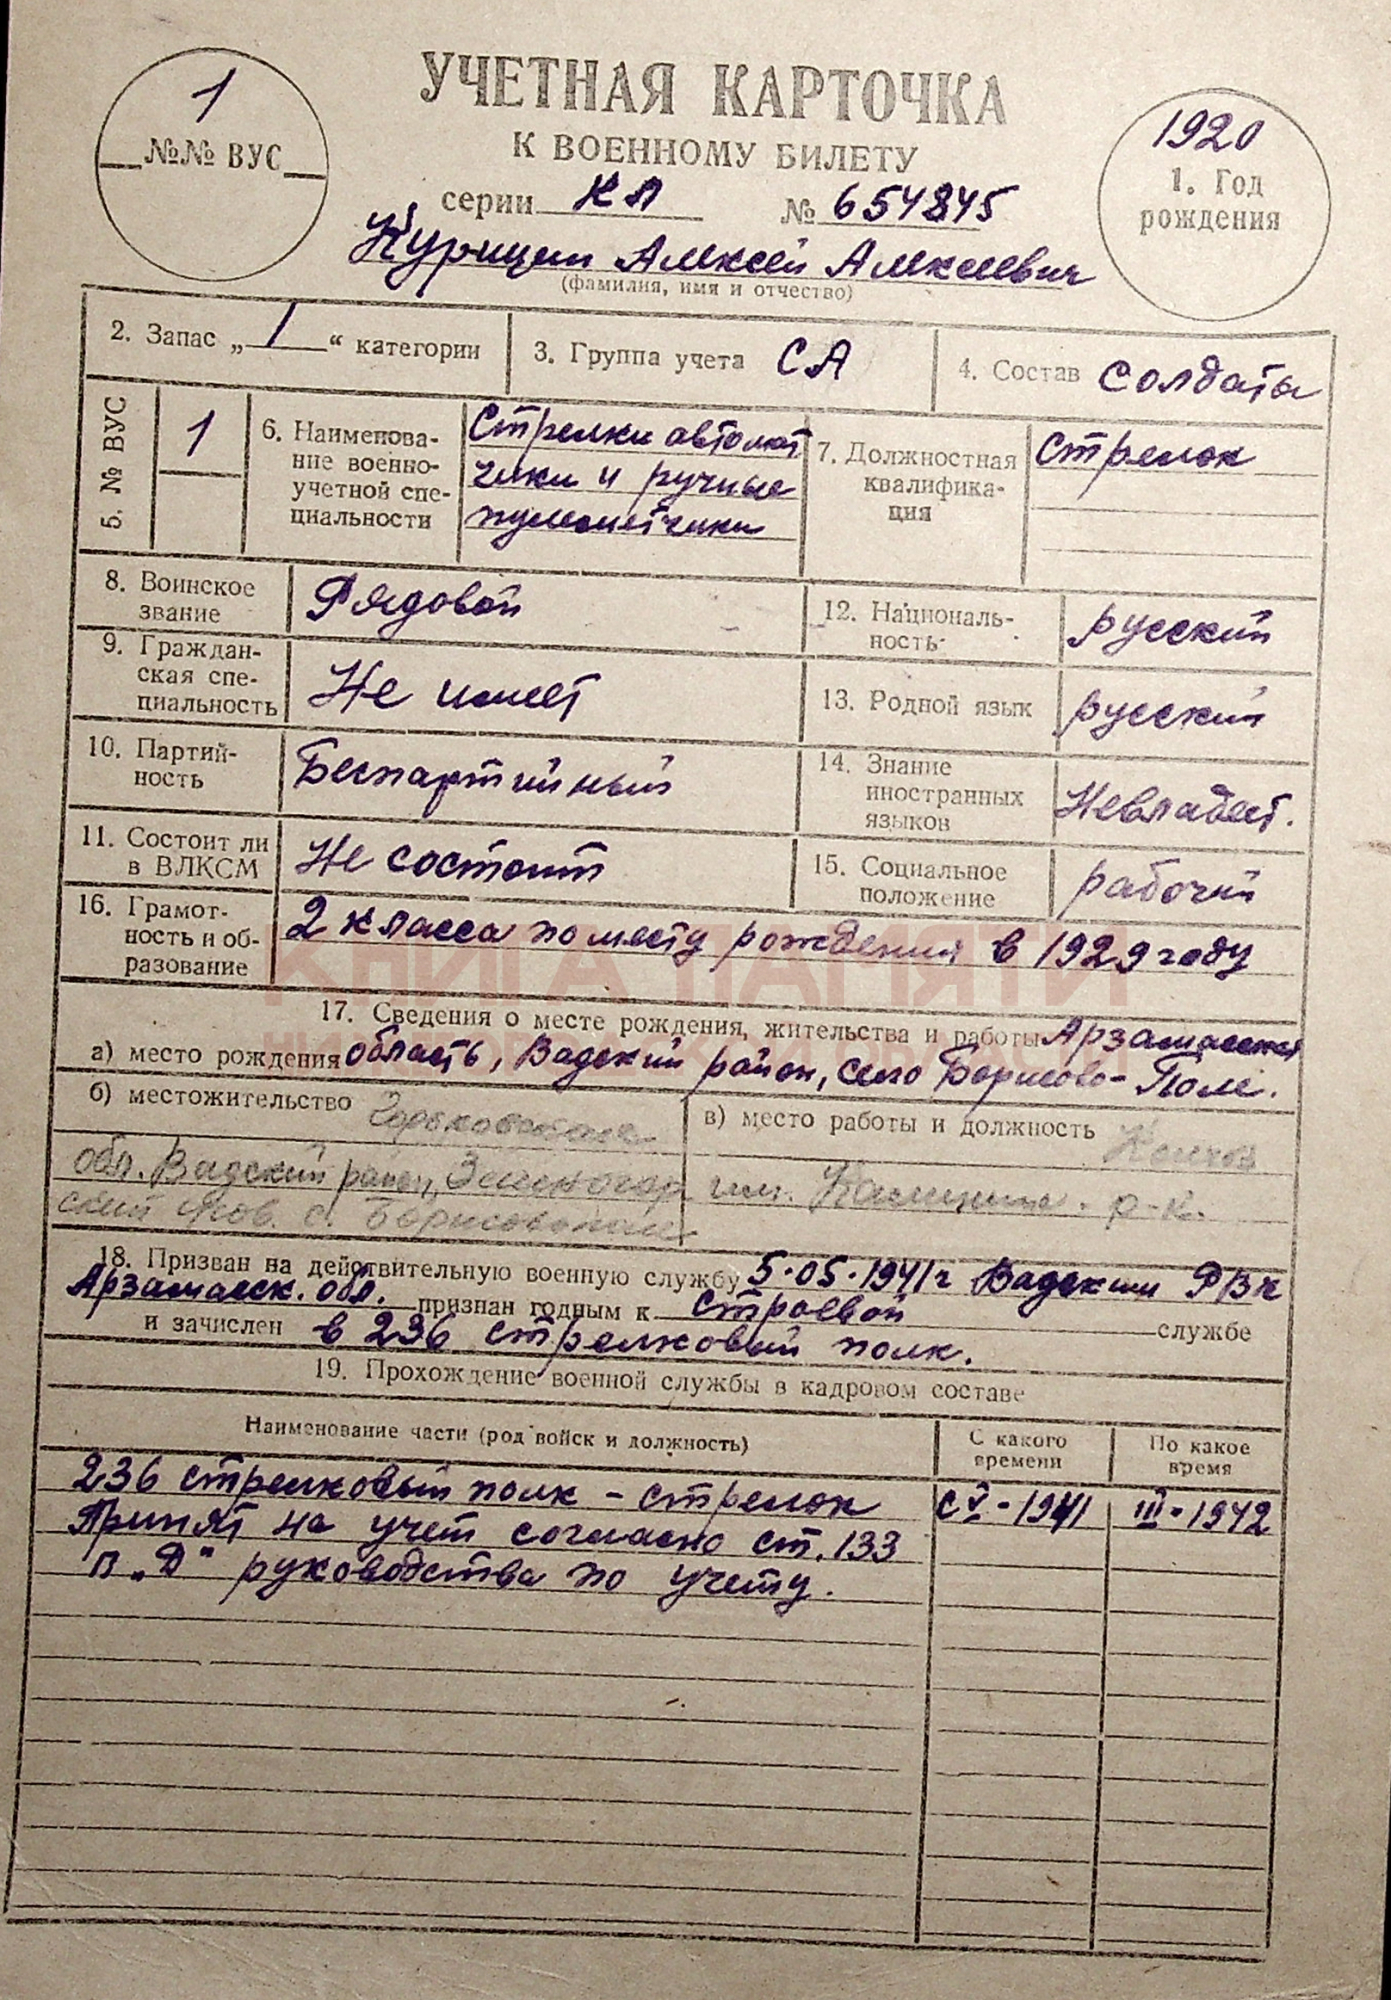 УЧЕТНАЯ КАРТОЧКА
К ВОЕННОМУ БИЛЕТУ
1
№№ ВУС
1920
1. Год
рождения
серии КП № 654845
Курицин Алексей Алексеевич
(фамилия, имя и отчество)
2. Запас „1“ категории
3. Группа учета СА
4. Состав солдаты
5. № ВУС
1
6. Наименова-
ние военно-
учетной спе-
циальности
Стрелки автомат
чики и ручные
пулеметчики
7. Должностная
квалифика-
ция
Стрелок
8. Воинское
звание
Рядовой
9. Граждан-
ская спе-
циальность
Не имеет
10. Партий-
ность
Беспартийный
11. Состоит ли
в ВЛКСМ
Не состоит
12. Националь-
ность
русский
13. Родной язык
русский
14. Знание
иностранных
языков
Невладеет.
15. Социальное
положение
рабочий
16. Грамот-
ность и об-
разование
2 класса по месту рождения в 1929 году
КНИГА ПАМЯТИ
НИЖЕГОРОДСКОЙ ОБЛАСТИ
17. Сведения о месте рождения, жительства и работы Арзамасская
а) место рождения область, Вадский район, село Борисово-Поле.
б) местожительство Горьковская
обл. Вадский район, Зеленогор
ский с. Борисовополе
в) место работы и должность Колхоз
им. Калинина. р-к.
18. Призван на действительную военную службу 5.05.1941г Вадским РВК
Арзамасск. обл. признан годным к строевой службе
и зачислен в 236 стрелковый полк.
19. Прохождение военной службы в кадровом составе
Наименование части (род войск и должность)
С какого
времени
По какое
время
236 стрелковый полк - стрелок с V-1941 III-1942
Принят на учет согласно ст. 133
п „Д“ руководства по учету.